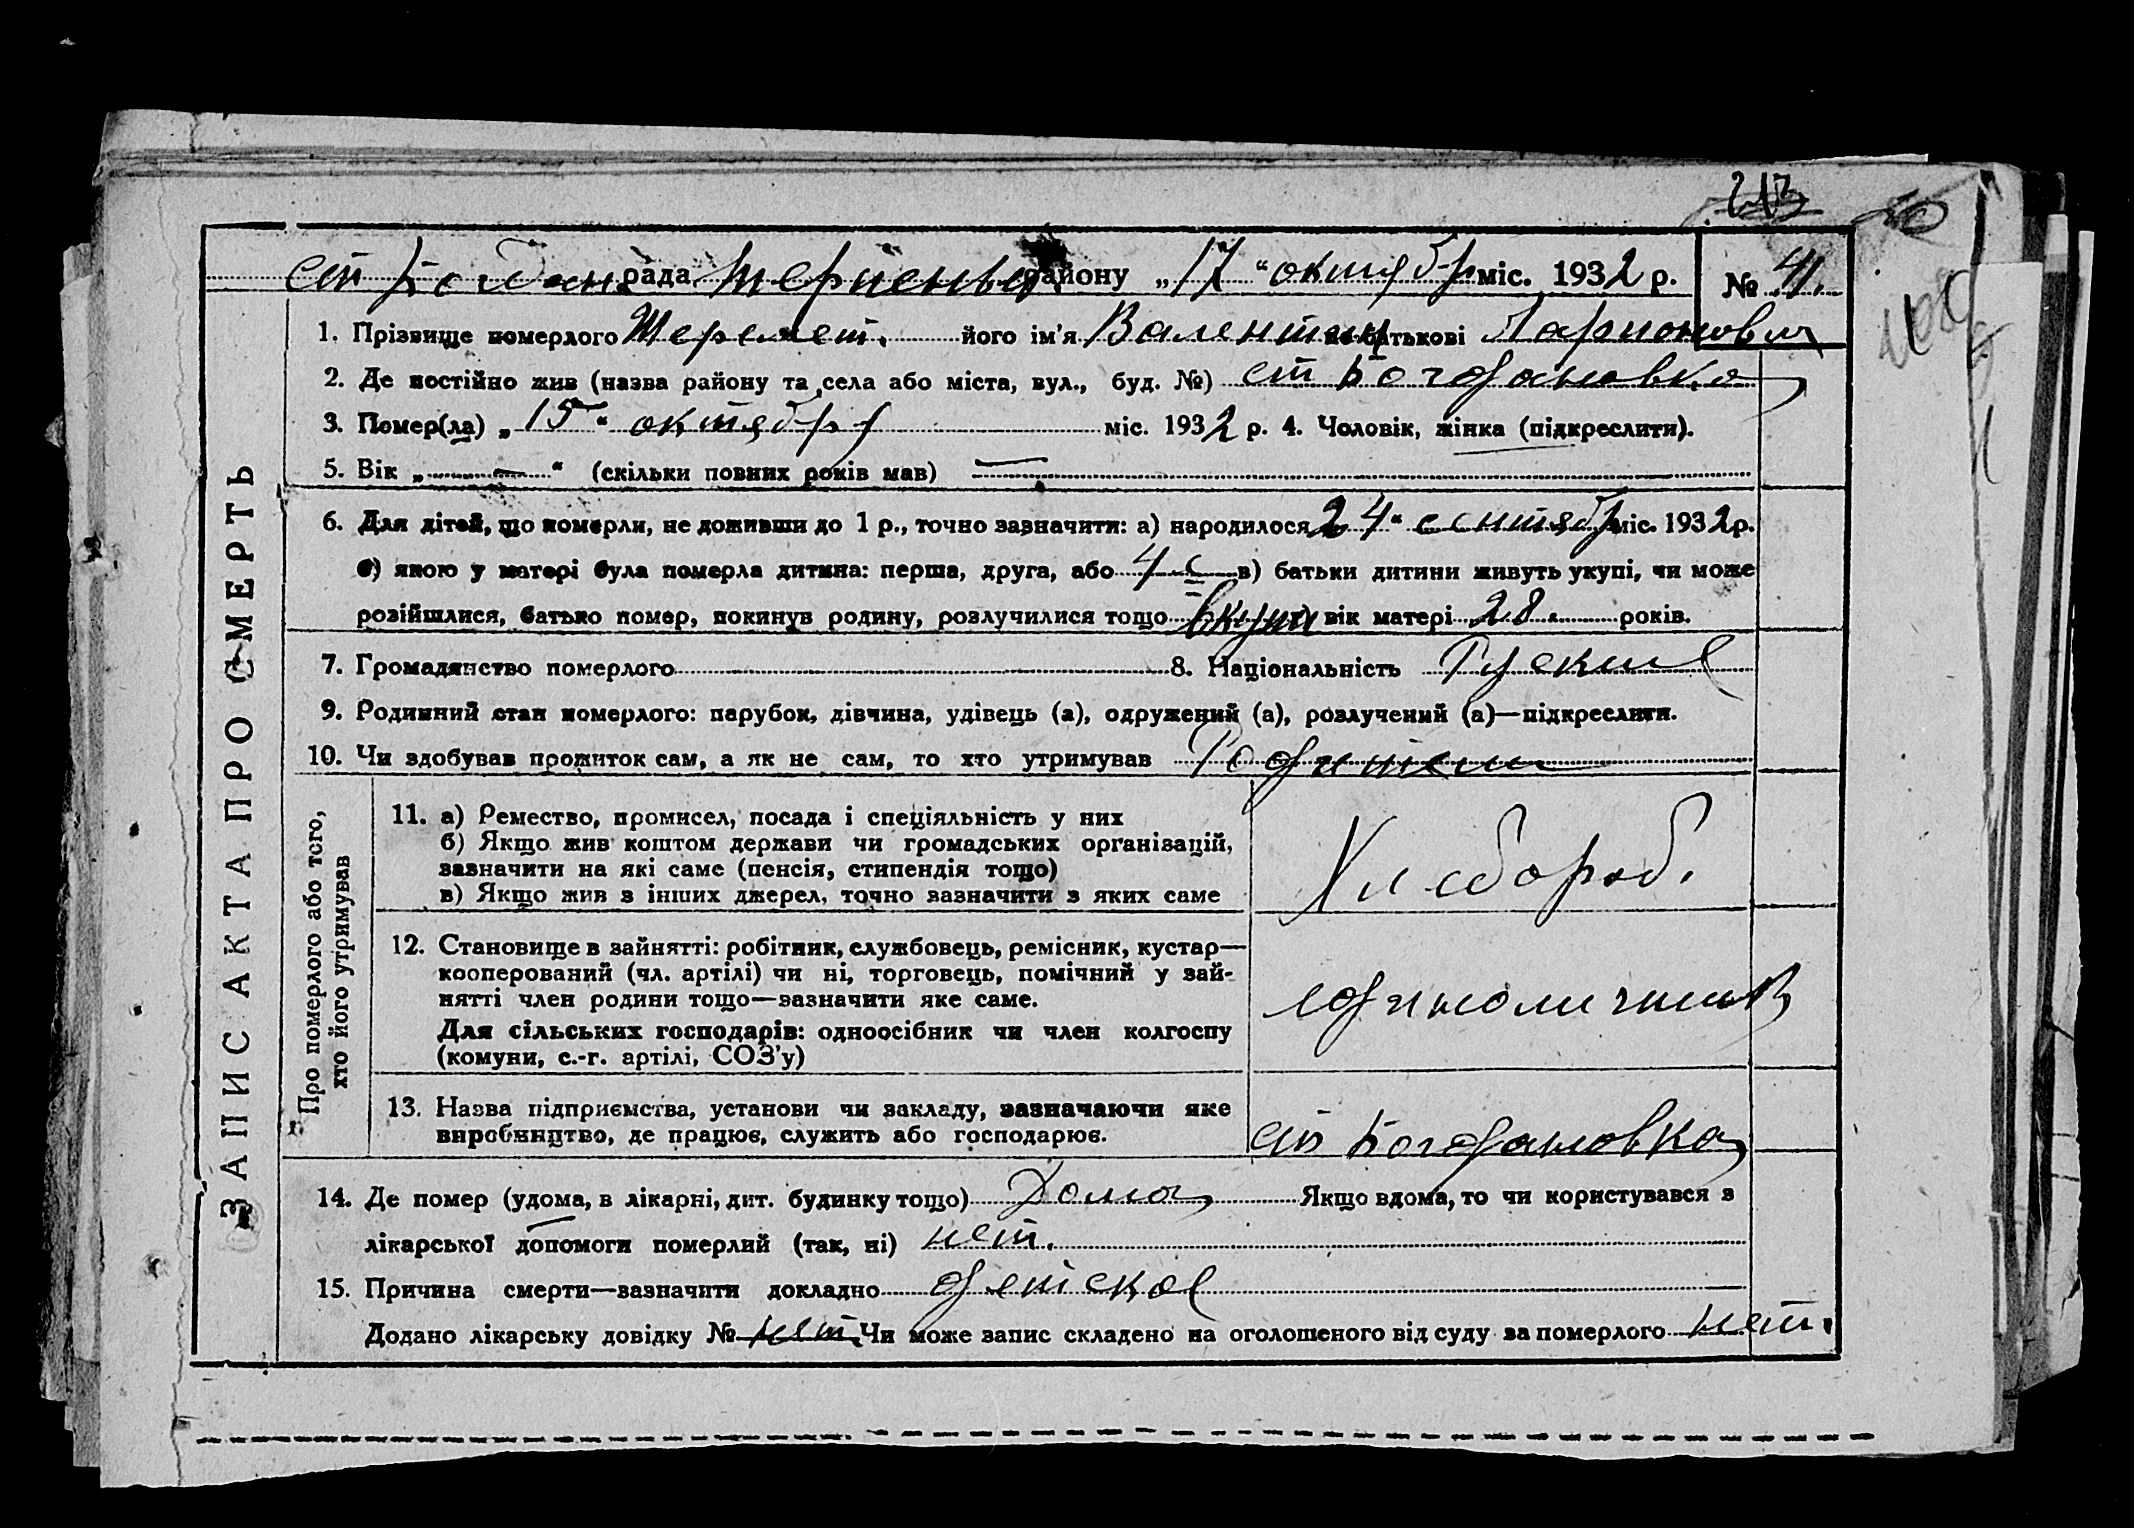 213
ст Богдан рада Терпеньев району „17“ октября міс. 1932 р. № 41.
1. Прізвище померлого Шеремет. його ім'я Валентин по батькові Ларионович
2. Де постійно жив (назва району та села або міста, вул., буд. №) ст Богдановка
3. Помер(ла) „15“ октября міс. 1932 р. 4. Чоловік, жінка (підкреслити).
5. Вік „—“ (скільки повних років мав) —
6. Для дітей, що померли, не доживши до 1 р., точно зазначити: а) народилося 24“ сентябр міс. 1932 р.
б) якою у матері була померла дитина: перша, друга, або 4 в) батьки дитини живуть укупі, чи може
розійшлися, батько помер, покинув родину, розлучилися тощо вкупи вік матері 28. років.
7. Громадянство померлого 8. Національність Руские
9. Родинний стан померлого: парубок, дівчина, удівець (а), одружений (а), розлучений (а)—підкреслити.
10. Чи здобував прожиток сам, а як не сам, то хто утримував Родители
ЗАПИС АКТА ПРО СМЕРТЬ
Про померлого або того,
хто його утримував
11. а) Ремество, промисел, посада і спеціяльність у них
б) Якщо жив коштом держави чи громадських організацій,
зазначити на які саме (пенсія, стипендія тощо)
в) Якщо жив з інших джерел, точно зазначити з яких саме
Хлебороб.
12. Становище в зайнятті: робітник, службовець, ремісник, кустар—
кооперований (чл. артілі) чи ні, торговець, помічний у зай-
нятті член родини тощо—зазначити яке саме.
Для сільських господарів: одноосібник чи член колгоспу
(комуни, с.-г. артілі, СОЗ'у)
13. Назва підприємства, установи чи закладу, зазначаючи яке
виробництво, де працює, служить або господарює.
ст Богдановка
14. Де помер (удома, в лікарні, дит. будинку тощо) Дома Якщо вдома, то чи користувався з
лікарської допомоги померлий (так, ні) нет.
15. Причина смерти—зазначити докладно детское
Додано лікарську довідку № нет Чи може запис складено на оголошеного від суду за померлого нет.